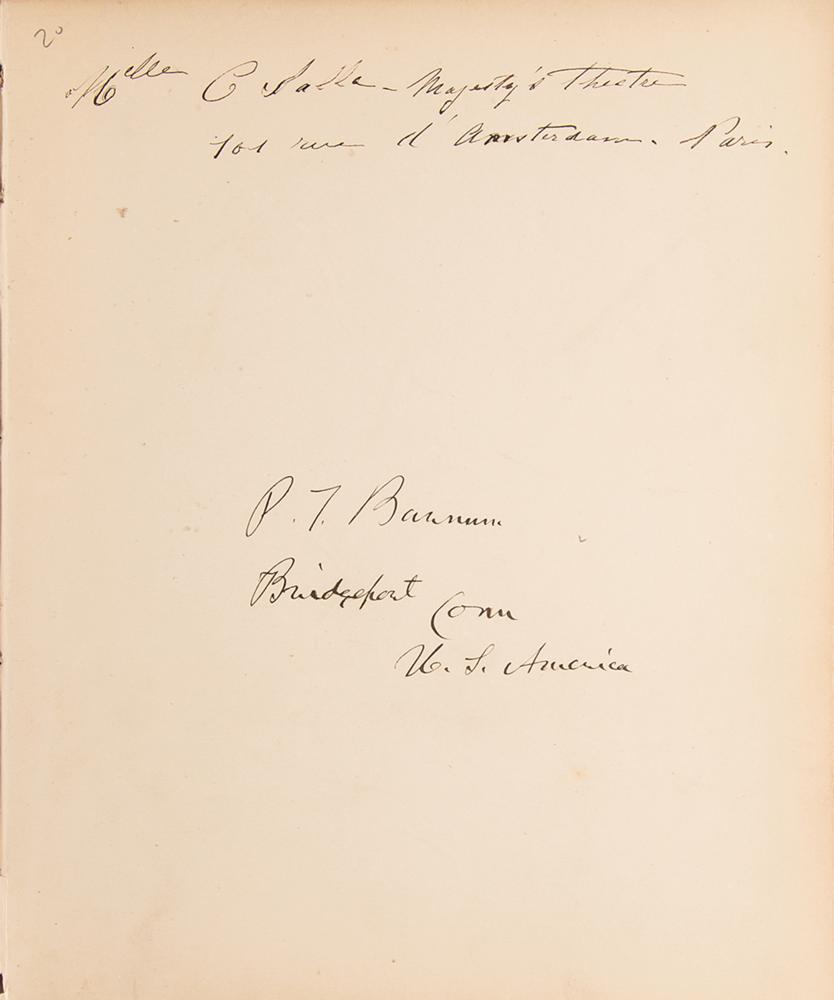 20
Mlle C Salla - Majesty's Theatre
101 rue d'Amsterdam. Paris.
P. T. Barnum
Bridgeport Conn
U. S. America